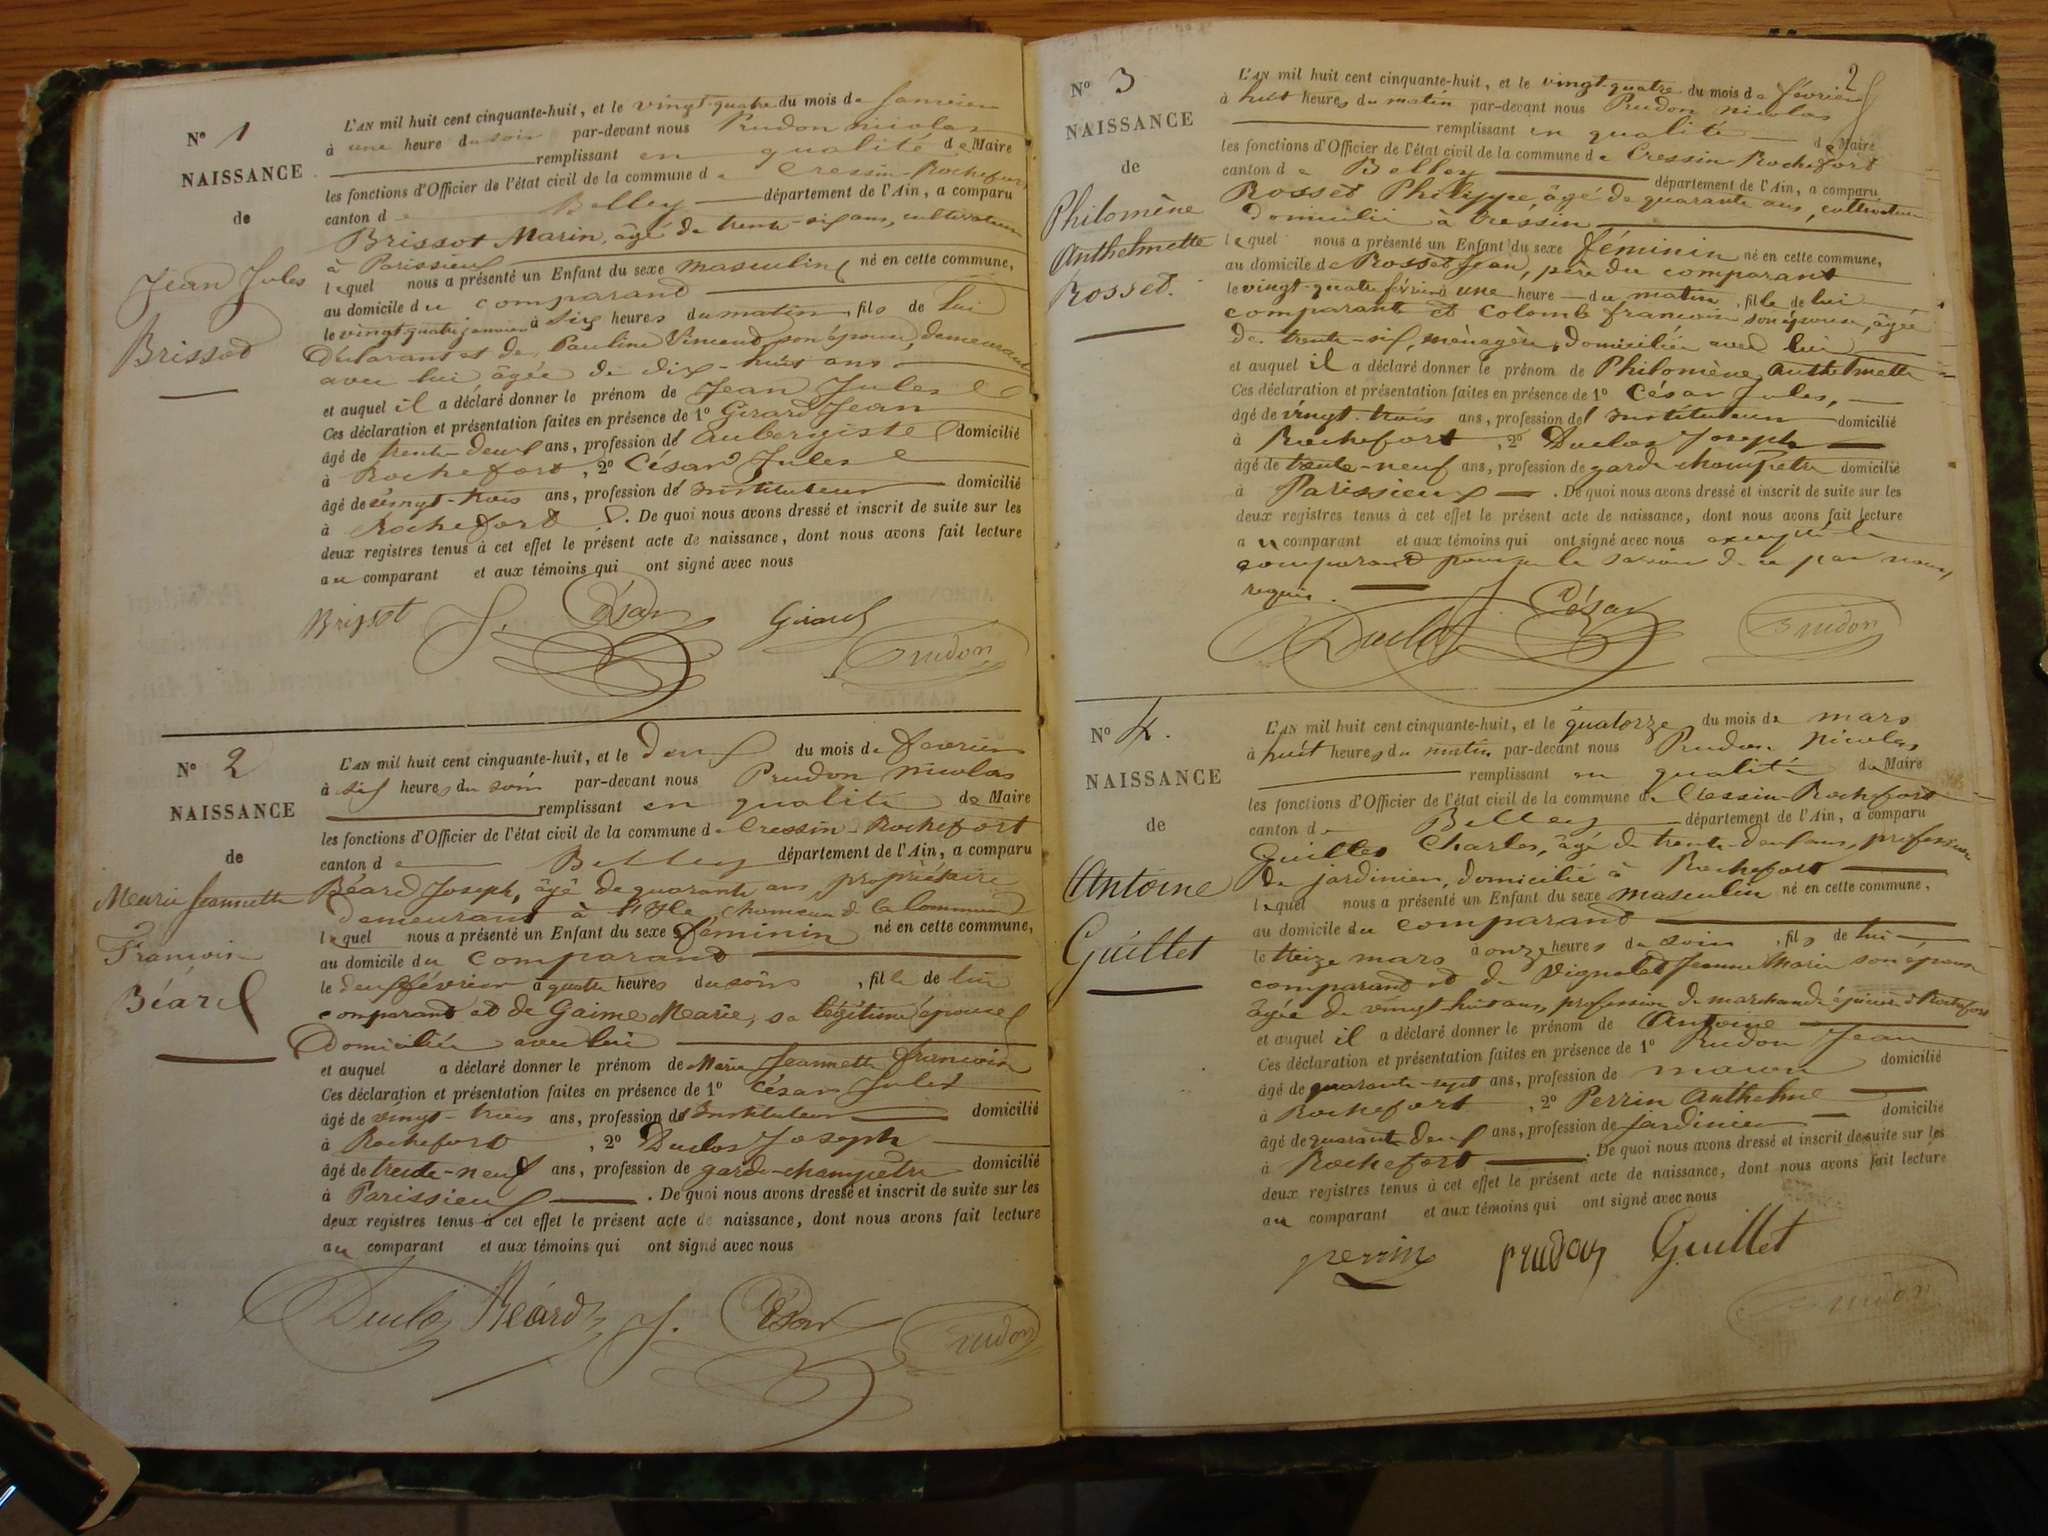 N° 1
NAISSANCE
de
Jean Jules
Brissot
L'AN mil huit cent cinquante-huit, et le vingt-quatre du mois de Janvier
à une heure du soir par-devant nous Prudon nicolas
remplissant en qualité de Maire
les fonctions d'Officier de l'état civil de la commune de Cressin-Rochefort
canton de Belley département de l'Ain, a comparu
Brissot Marin, âgé de trente-six ans, cultivateur
à Parissieux
lequel nous a présenté un Enfant du sexe masculin né en cette commune,
au domicile du comparand
le vingt-quatre janvier à six heures du matin, fils de lui
Déclarant et de Pauline Vincend son épouse, demeurant
avec lui âgée de dix-huit ans
et auquel il a déclaré donner le prénom de Jean Jules
Ces déclaration et présentation faites en présence de 1° Girard Jean
âgé de trente-deux ans, profession d' aubergiste domicilié
à Rochefort, 2° César Jules
âgé de vingt-trois ans, profession d' Instituteur domicilié
à Rochefort. De quoi nous avons dressé et inscrit de suite sur les
deux registres tenus à cet effet le présent acte de naissance, dont nous avons fait lecture
au comparant et aux témoins qui ont signé avec nous
Brissot J. César Girard
Prudon
N° 2
NAISSANCE
de
Marie Jeannette
Françoise
Béard
L'AN mil huit cent cinquante-huit, et le deux du mois de février
à six heures du soir par-devant nous Prudon nicolas
remplissant en qualité de Maire
les fonctions d'Officier de l'état civil de la commune de Cressin-Rochefort
canton de Belley département de l'Ain, a comparu
Béard Joseph, âgé de quarante ans propriétaire
demeurant à l'Isle, hameau de la Commune
lequel nous a présenté un Enfant du sexe féminin né en cette commune,
au domicile du comparand
le deux février à quatre heures du soir, fille de lui
comparand et de Gaime Marie, sa légitime épouse
Domiciliée avec lui
et auquel a déclaré donner le prénom de Marie Jeannette françoise
Ces déclaration et présentation faites en présence de 1° César Jules
âgé de vingt-trois ans, profession d' Instituteur domicilié
à Rochefort, 2° Duclos Joseph
âgé de trente-neuf ans, profession de garde-champêtre domicilié
à Parissieux. De quoi nous avons dressé et inscrit de suite sur les
deux registres tenus à cet effet le présent acte de naissance, dont nous avons fait lecture
au comparant et aux témoins qui ont signé avec nous
Duclos Béard J. César Prudon
2
N° 3
NAISSANCE
de
Philomène
Anthelmette
Rosset.
L'AN mil huit cent cinquante-huit, et le vingt-quatre du mois de février
à huit heures du matin par-devant nous Prudon nicolas
remplissant en qualité de Maire
les fonctions d'Officier de l'état civil de la commune de Cressin-Rochefort
canton de Belley département de l'Ain, a comparu
Rosset Philippe, âgé de quarante ans, cultivateur
domicilié à Cressin
lequel nous a présenté un Enfant du sexe féminin né en cette commune,
au domicile de Rosset Jean, père du comparant
le vingt-quatre février à une heure du matin, fille de lui
comparant et Colomb francoise son épouse, âgée
de trente-six, ménagère, domiciliée avec lui
et auquel il a déclaré donner le prénom de Philomène Anthelmette
Ces déclaration et présentation faites en présence de 1° César Jules,
âgé de vingt-trois ans, profession d' Instituteur domicilié
à Rochefort, 2° Duclos Joseph
âgé de trente-neuf ans, profession de garde champêtre domicilié
à Parissieux. De quoi nous avons dressé et inscrit de suite sur les
deux registres tenus à cet effet le présent acte de naissance, dont nous avons fait lecture
au comparant et aux témoins qui ont signé avec nous excepté le
comparand pour ne le savoir de ce par nous
requis.
Duclos J. César Prudon
N° 4.
NAISSANCE
de
Antoine
Guillet
L'AN mil huit cent cinquante-huit, et le quatorze du mois de mars
à huit heures du matin par-devant nous Prudon Nicolas
remplissant en qualité de Maire
les fonctions d'Officier de l'état civil de la commune de Cressin-Rochefort
canton de Belley département de l'Ain, a comparu
Guillet Charles, âgé de trente-deux ans, profession
de jardinier, domicilié à Rochefort
lequel nous a présenté un Enfant du sexe masculin né en cette commune,
au domicile du comparand
le treize mars à onze heures du soir, fils de lui
comparand et de Vignolet Jeanne Marie son épouse
âgée de vingt-huit ans, profession de marchande épicière à Rochefort
et auquel il a déclaré donner le prénom de Antoine
Ces déclaration et présentation faites en présence de 1° Prudon Jean
âgé de quarante-sept ans, profession de maçon domicilié
à Rochefort, 2° Perrin Anthelme
âgé de quarante deux ans, profession de Jardinier domicilié
à Rochefort. De quoi nous avons dressé et inscrit de suite sur les
deux registres tenus à cet effet le présent acte de naissance, dont nous avons fait lecture
au comparant et aux témoins qui ont signé avec nous
perrin prudon Guillet
Prudon